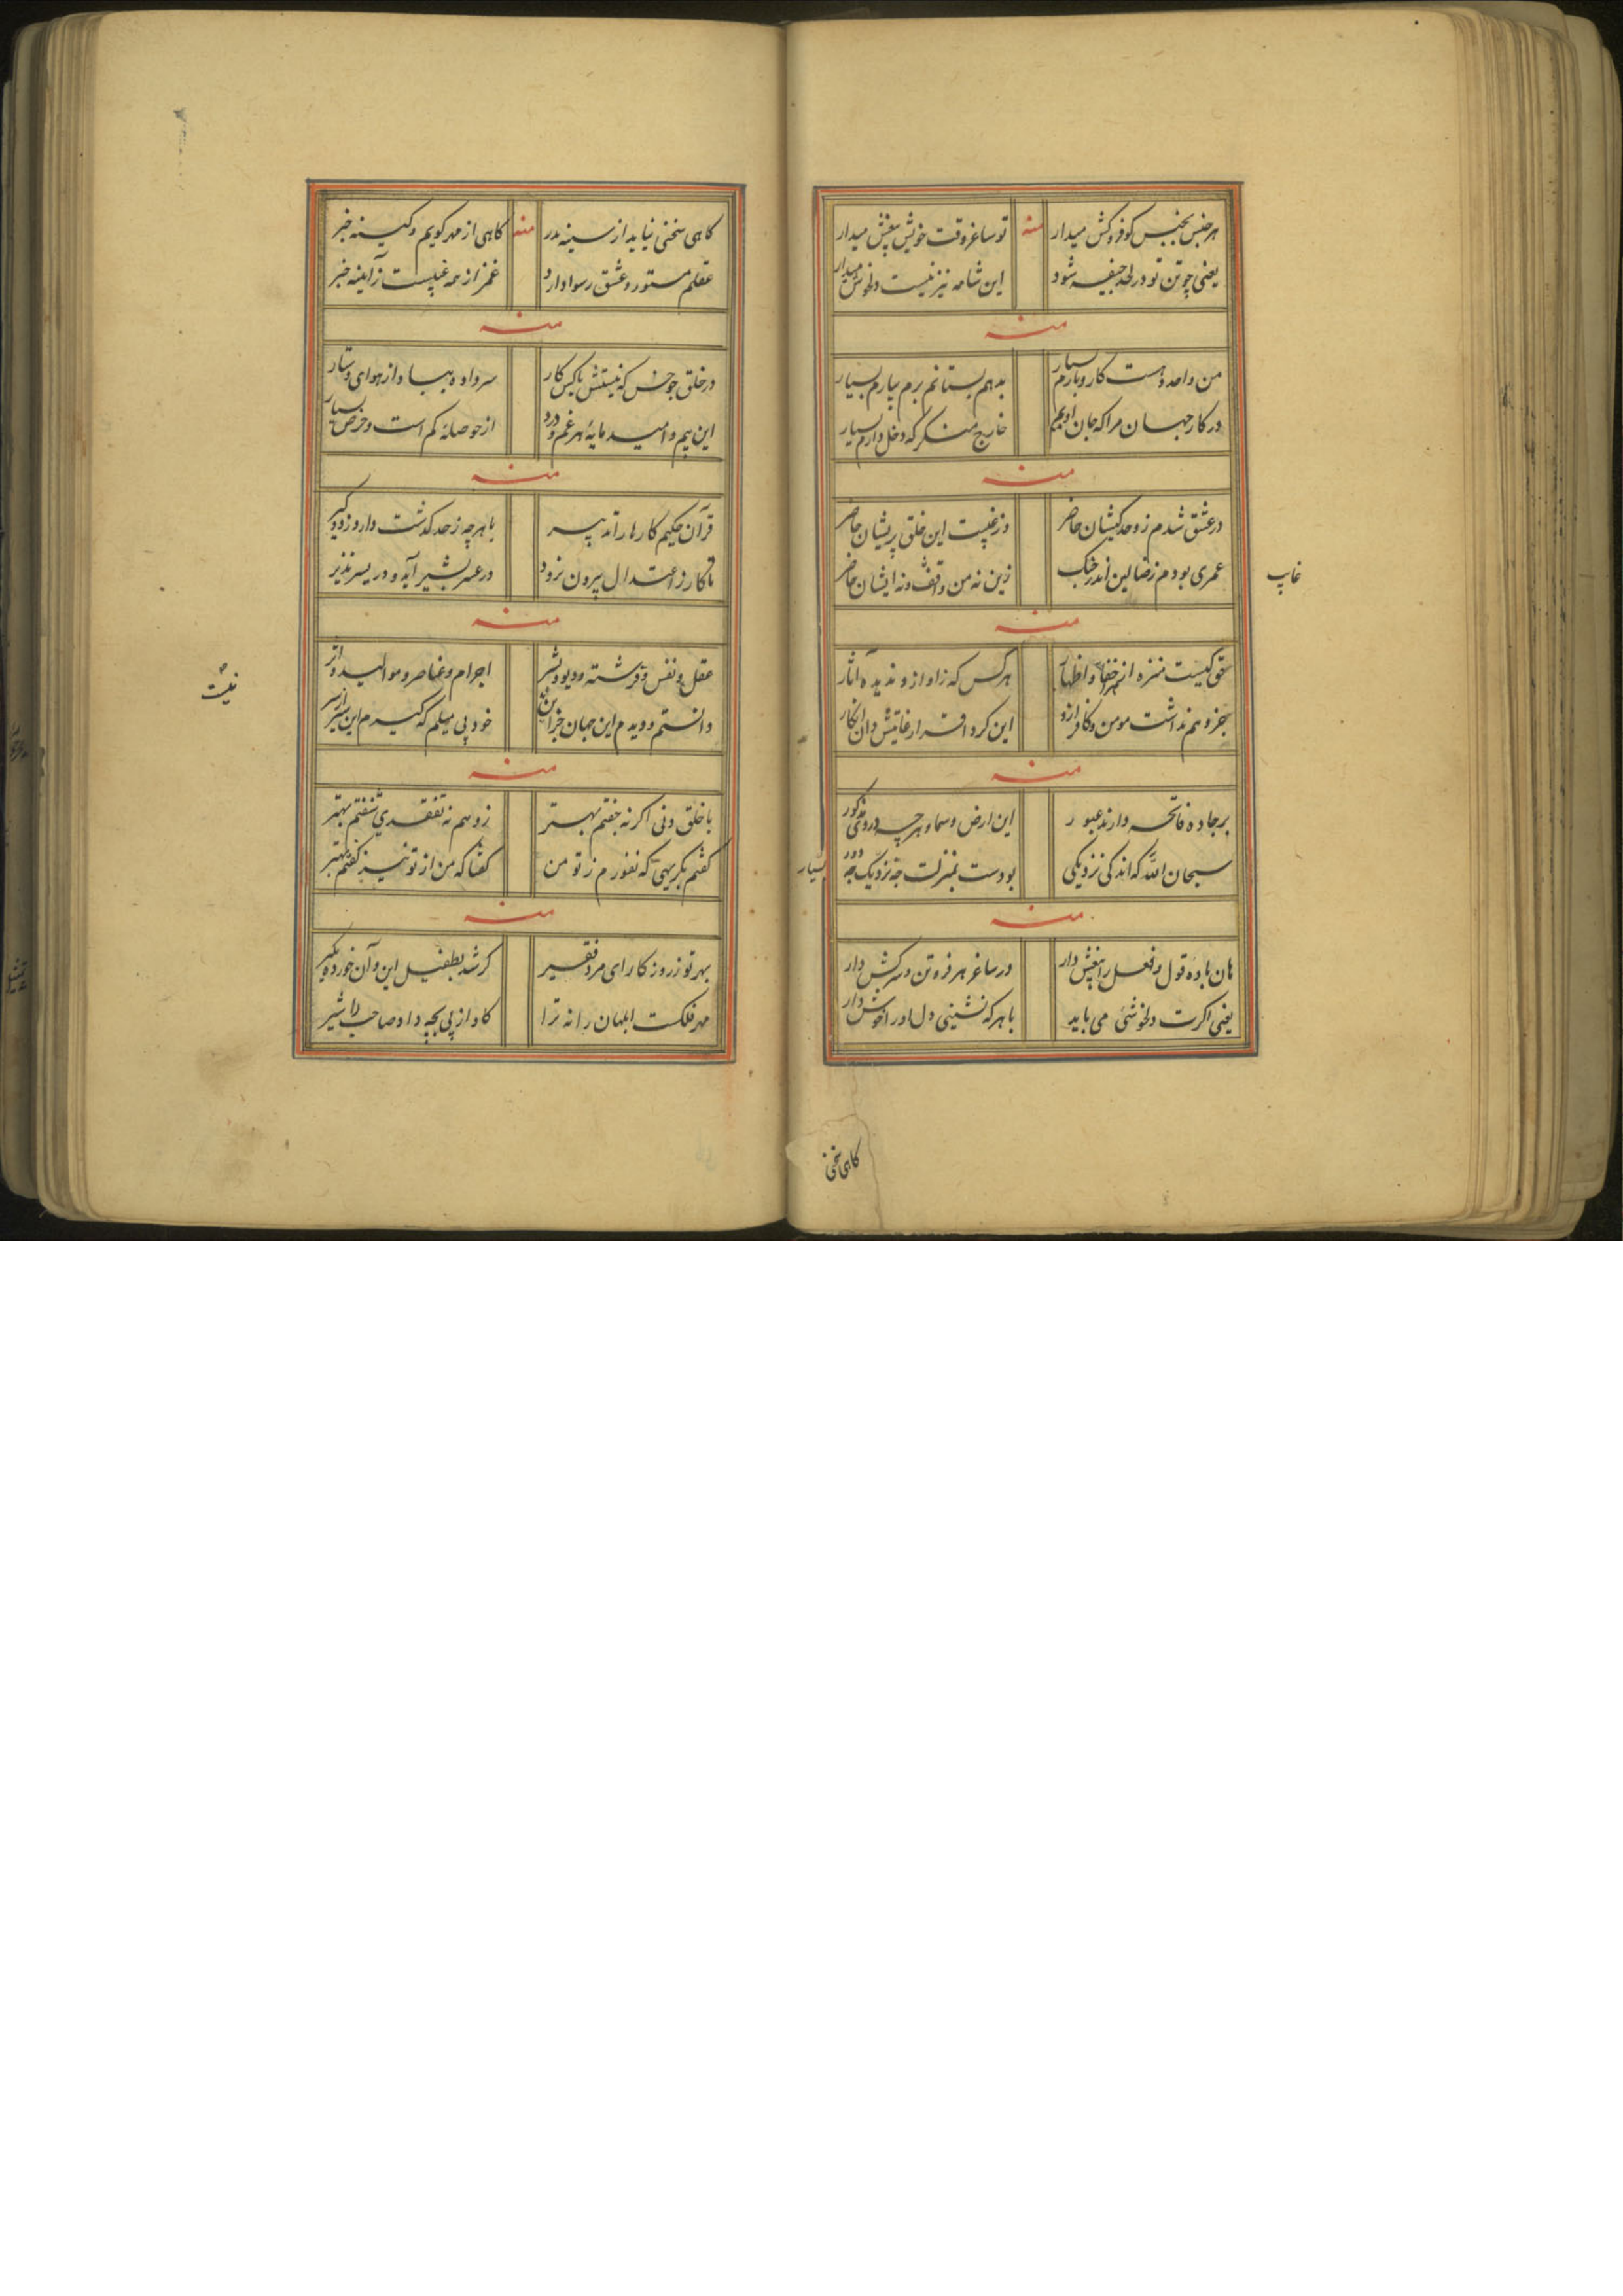 هر جنس بجنس کو فروکش میدار منه تو ساغر وقت خویش بیغش میدار
یعنی چو تن تو در لحد جیفه شود این شامه نیز نیست دلخوش میدار
منه
من واحد و هست کار و بارم بسیار بدهم بستانم برم بیارم بسیار
در کار جهان مرا که جان اویم خارج منگر که دخل دارم بسیار
منه
در عشق شدم ز وحدکیشان حاضر وز غیبت این خلق پریشان حاضر
عمری بودم ز ضالین اندر جنگ زین نه من واقف و نه ایشان حاضر
غایب
منه
حق کیست منزه از خفا و اظهار هر کس که زاد ازو ندیده آثار
جز وهم نداشت مومن و کافر ازو این کرد اقرار غایتش دان انکار
منه
بر جاده فاتحه دارند عبور این ارض و سما و هر چه در وی مذکور
سبحان الله که اندکی نزدیکی بودست بمنزلت چه نزدیک چه دور
بسیار
منه
هان باده قول و فعل را بیغش دار در ساغر هر فروتن و سرکش دار
یعنی اگرت دلخوشئی می باید با هر که نشینی دل او را خوش دار
کاهی سخنی
کاهی سخنی نیاید از سینه بدر منه کاهی از مهر کویم و کینه خبر
عقلم مستور و عشق رسوا دارد غمز از همه غیبست ز آیینه خبر
منه
در خلق جو خس که نیستش با کس کار سر داده بباد از هوای دستار
این بیم و امید مایه هر غم و درد از حوصله کم است و حرص بسیار
منه
قرآن حکیم کارها را تدبیر با هر چه ز حد کذشت دارد زد و کیر
تا کار ز اعتدال بیرون نرود در عسر بشیر آید و در یسر نذیر
منه
عقل و نفس و فرشته و دیو و بشر اجرام و عناصر و موالید و اثر
دانستم و دیدم این جهان جز او خود پی میلم که کیرم این سیر از سر
نیست
منه
با خلق دنی اکر نه جفتم بهتر زو هم نه تفقدی شنفتم بهتر
کفتم بکریهی که نفورم ز تو من کفتا که من از تو نیز کفتم بهتر
منه
بهر تو ز روزکار ای مرد فقیر کر شد بطفیل این و آن خورده مکیر
مهر فلکست ابلهان را نه ترا کاو از پی بچه داد صاحب را شیر